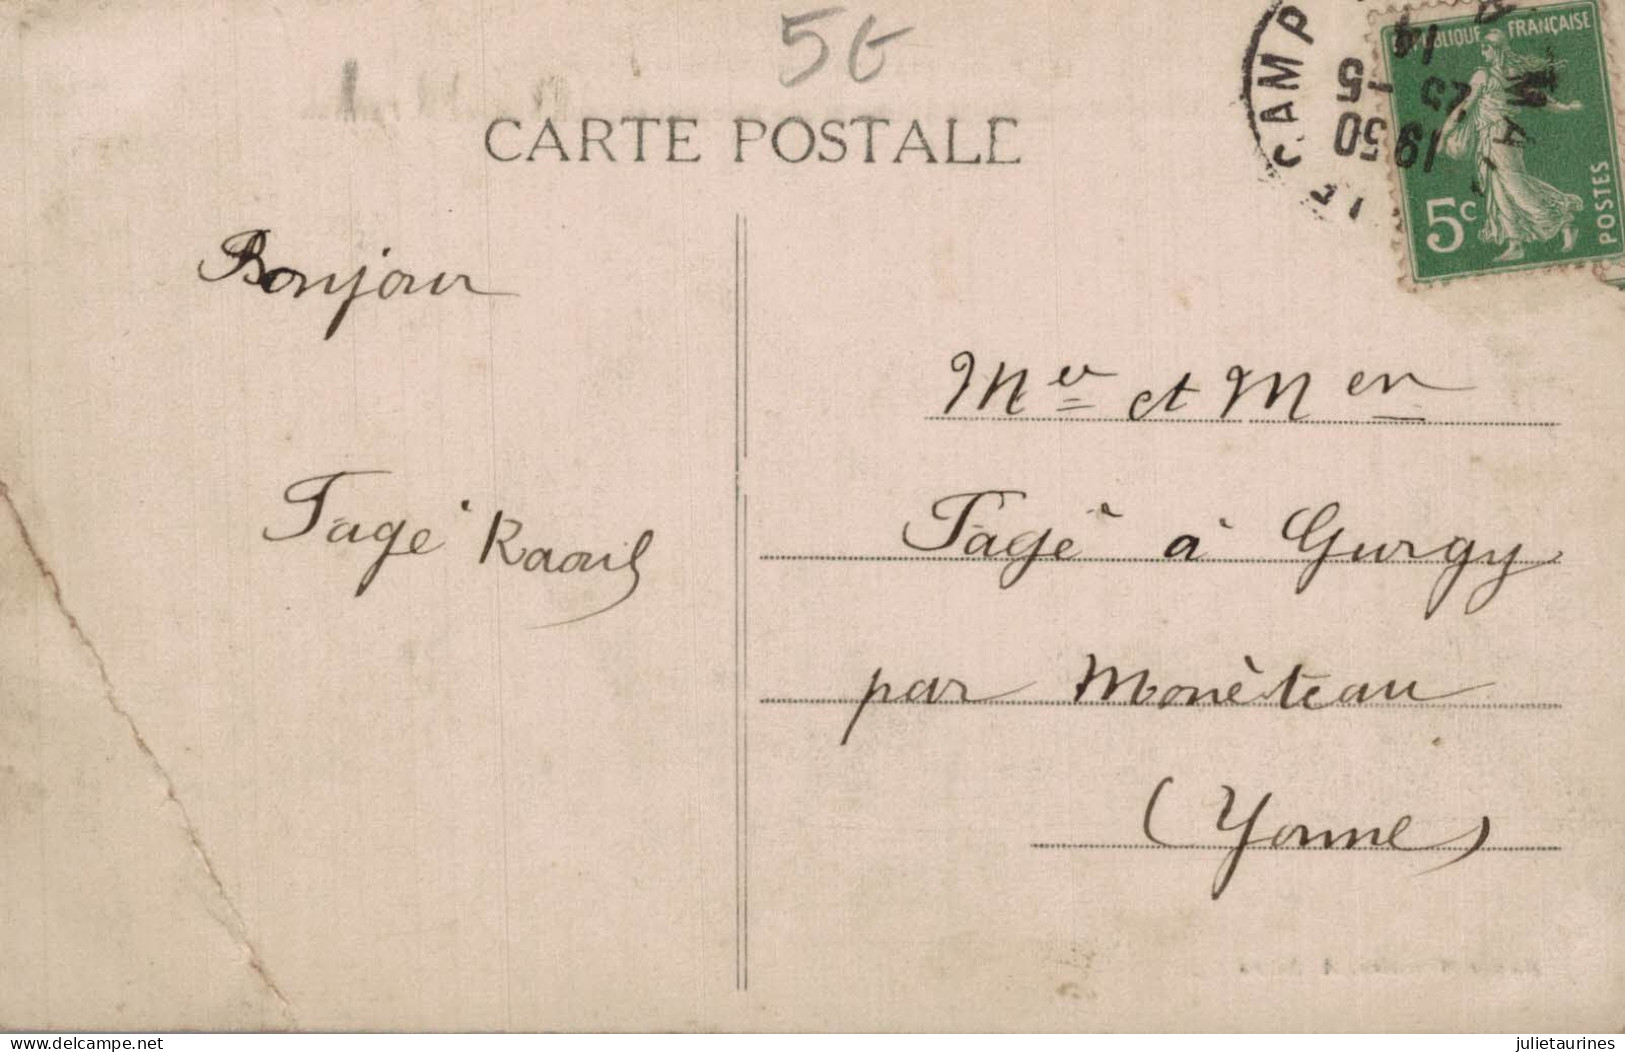 5G
CARTE POSTALE
CAMP
19 30
25 - 5
14
RÉPUBLIQUE FRANÇAISE
POSTES
5c
Bonjour
Tagé Raoul
Mer et Men
Tagé à Gurgy
par Monèteau
(Yonne)
delcampe.net
julietaurines